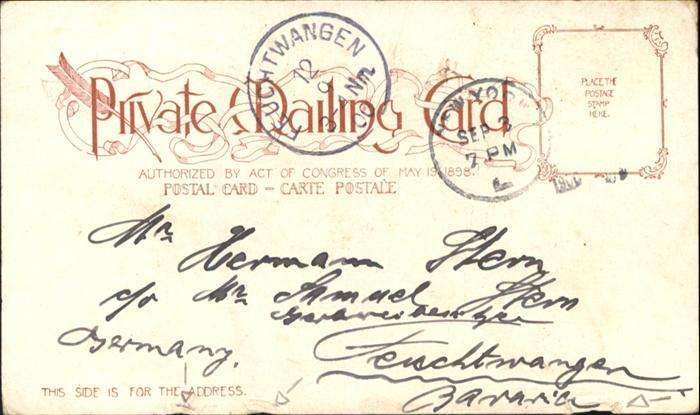 Private Mailing Card
AUTHORIZED BY ACT OF CONGRESS OF MAY 19, 1898.
POSTAL CARD – CARTE POSTALE
FEUCHTWANGEN
12
9
NEW YORK
SEP 3
7 PM
PLACE THE
POSTAGE
STAMP
HERE.
Mr Hermann Stern
c/o Mr Samuel Stern
Germany.
Feuchtwangen
Bavaria
THIS SIDE IS FOR THE ADDRESS.